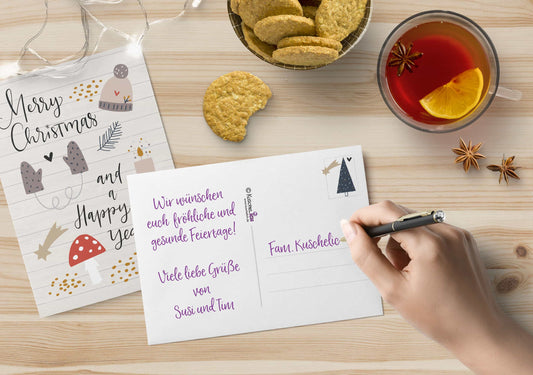 Merry
Christmas
and
a
Happy
New
Year
Wir wünschen
euch fröhliche und
gesunde Feiertage!
Viele liebe Grüße
von
Susi und Tim
Fam. Kuschelic